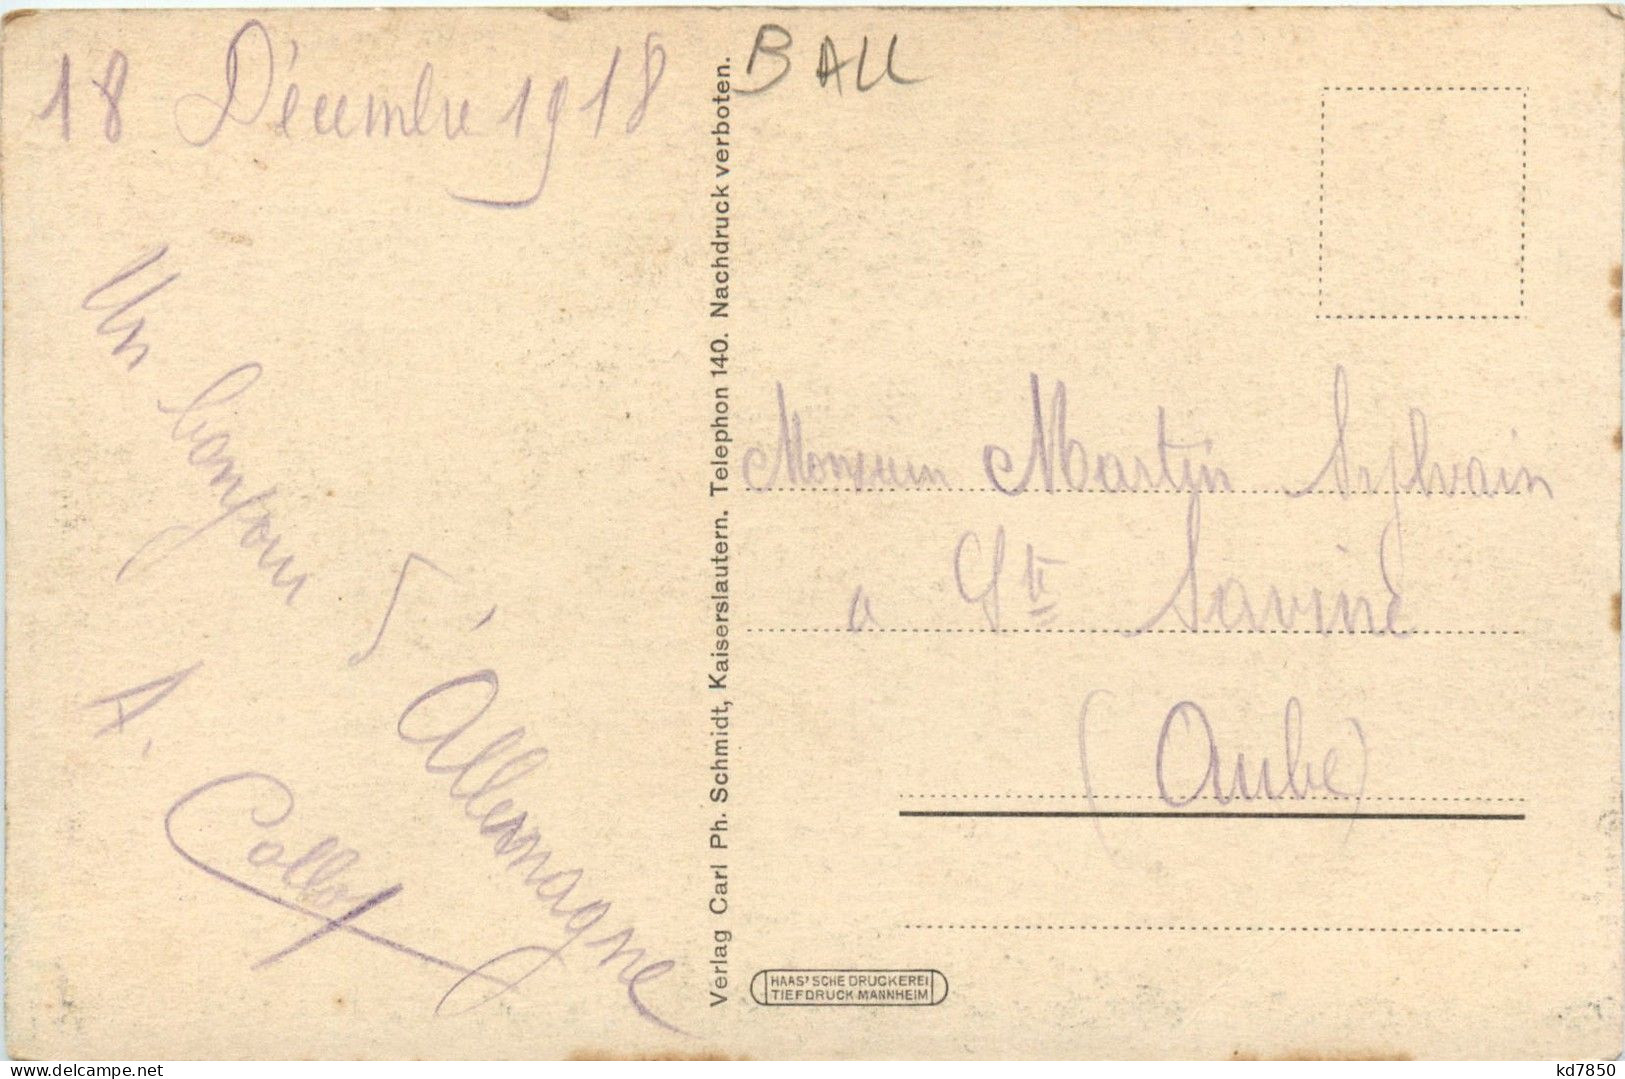 18 Décembre 1918
Un bonjour
d'Allemagne
A. Collot
BALL
Verlag Carl Ph. Schmidt, Kaiserslautern. Telephon 140. Nachdruck verboten.
Monsieur Martin Sylvain
a Ste Savine
(Aube)
HAAS'SCHE DRUCKEREI
TIEFDRUCK MANNHEIM
www.delcampe.net
kd7850